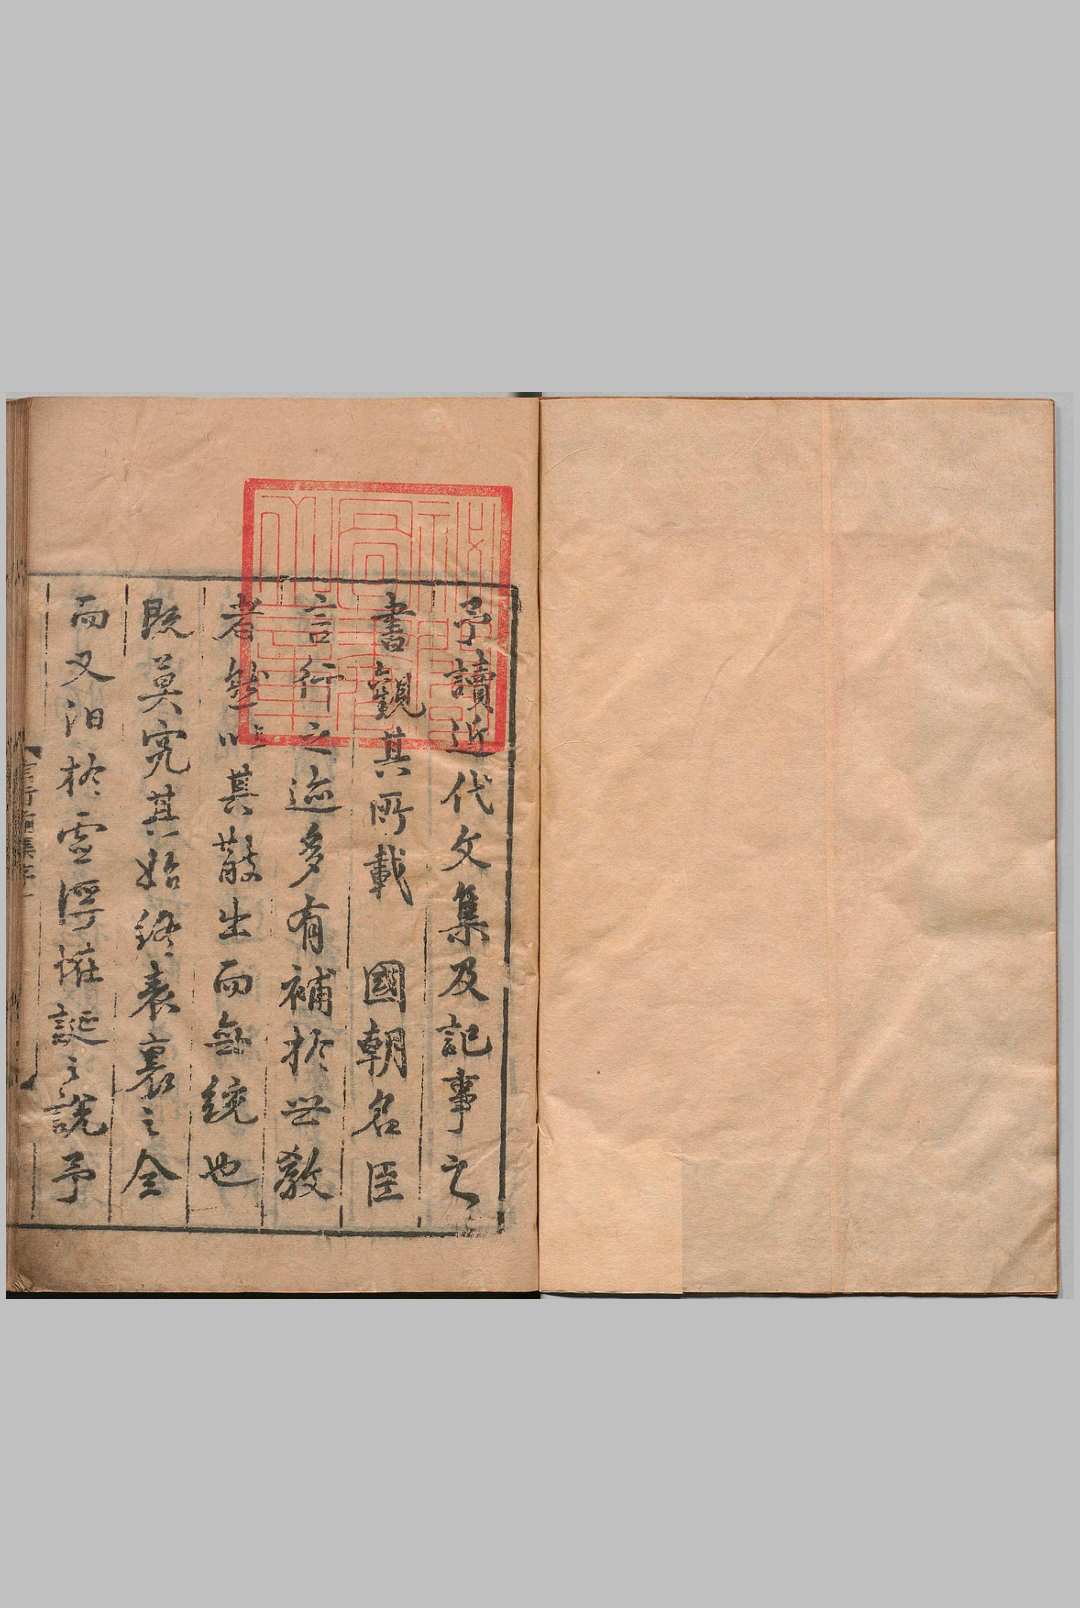 予讀近代文集及記事之
書觀其所載　國朝名臣
言行之迹多有補扵世教
者然以其散出而無統也
既莫究其始終表裏之全
而又汩扵虛浮怪誕之說予
言行前集序